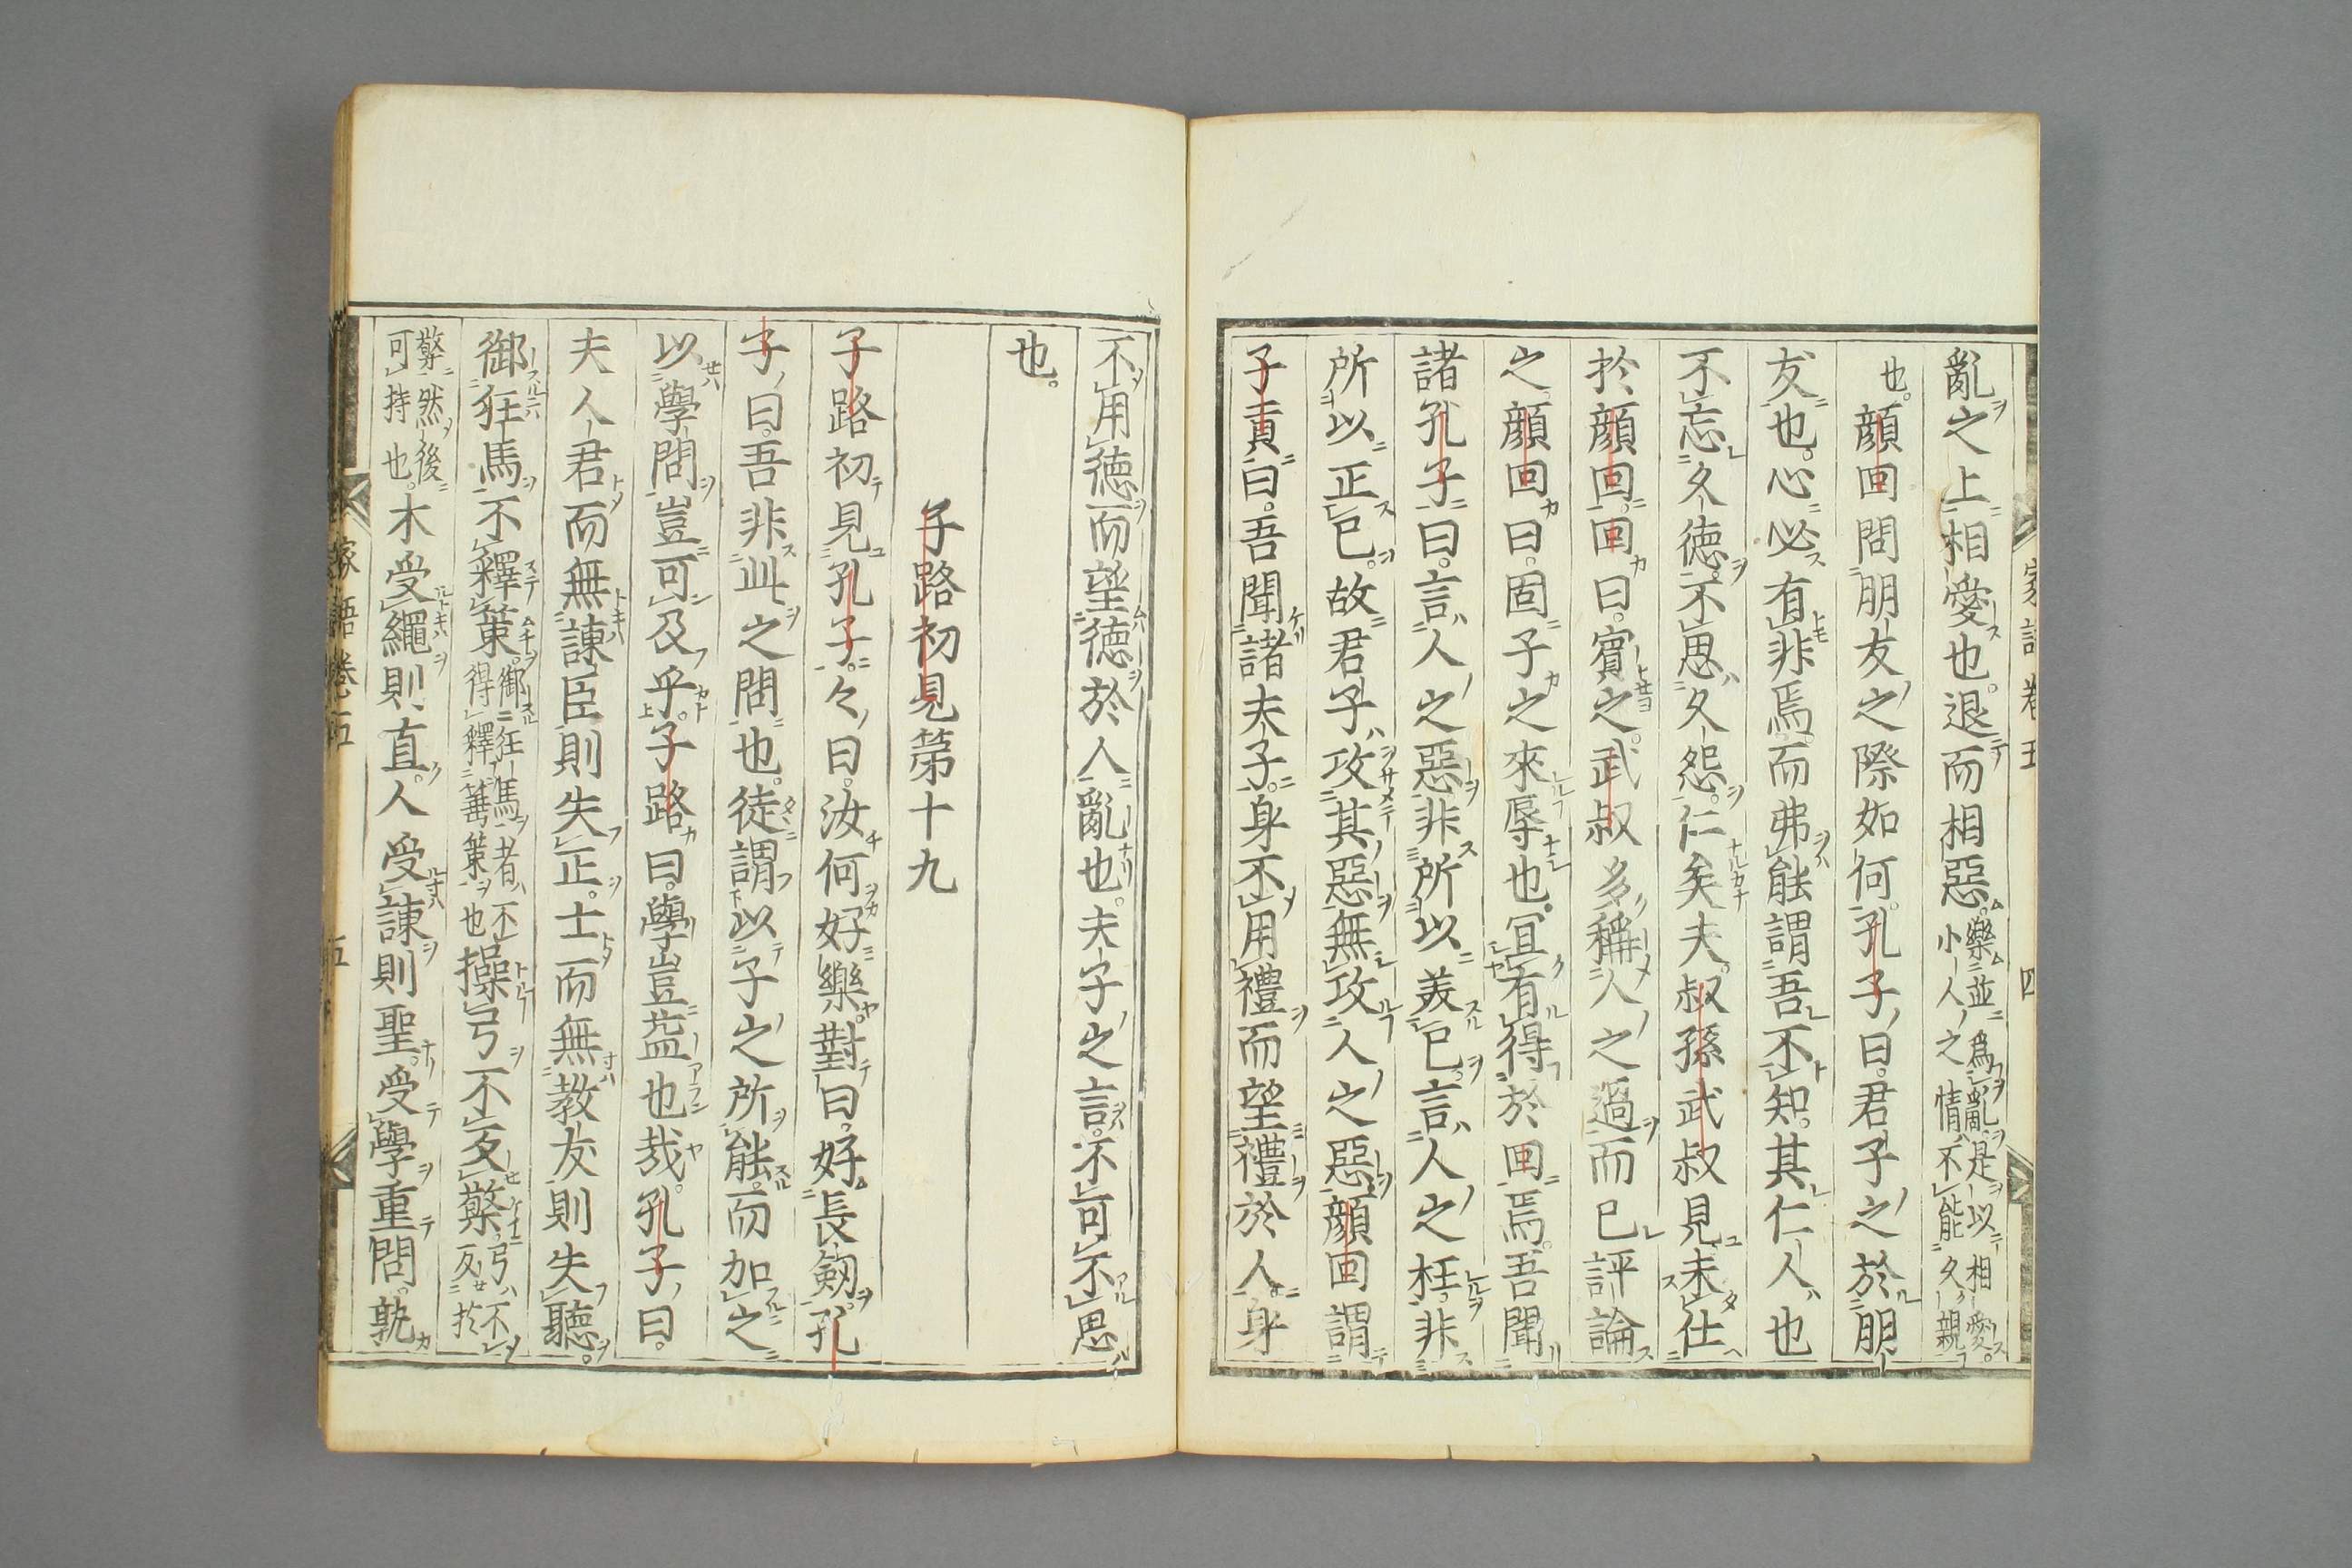 亂之上相愛也。退而相惡。樂並爲亂是以相愛。小人之情不能久親
也。顔回問朋友之際如何。孔子曰。君子之於朋
友也。心必有非焉。而弗能謂吾不知。其仁人也
不忘久德。不思久怨。仁矣夫。叔孫武叔見未仕
於顔回。回曰。賓之。武叔多稱人之過而已評論
之。顔回曰。固子之來辱也。宜有得於回焉。吾聞
諸孔子曰。言人之惡。非所以美己。言人之枉。非
所以正己。故君子攻其惡。無攻人之惡。顔回謂
子貢曰。吾聞諸夫子。身不用禮而望禮於人。身
不用德而望德於人。亂也。夫子之言。不可不思
也。
子路初見第十九
子路初見孔子。々曰。汝何好樂。對曰。好長劔。孔
子曰。吾非此之問也。徒謂以子之所能。而加之
以學問。豈可及乎。子路曰。學豈益也哉。孔子曰。
夫人君而無諫臣則失正。士而無教友則失聽。
御狂馬不釋策。御狂馬者不得釋箠策也操弓不反檠。弓不反於
檠然後可持也。木受繩則直。人受諫則聖。受學重問。孰
家語卷五
四
家語卷五
五